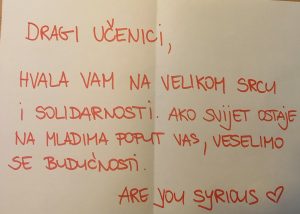 DRAGI UČENICI,
HVALA VAM NA VELIKOM SRCU
I SOLIDARNOSTI. AKO SVIJET OSTAJE
NA MLADIMA POPUT VAS, VESELIMO
SE BUDUĆNOSTI.
ARE YOU SYRIOUS ♡